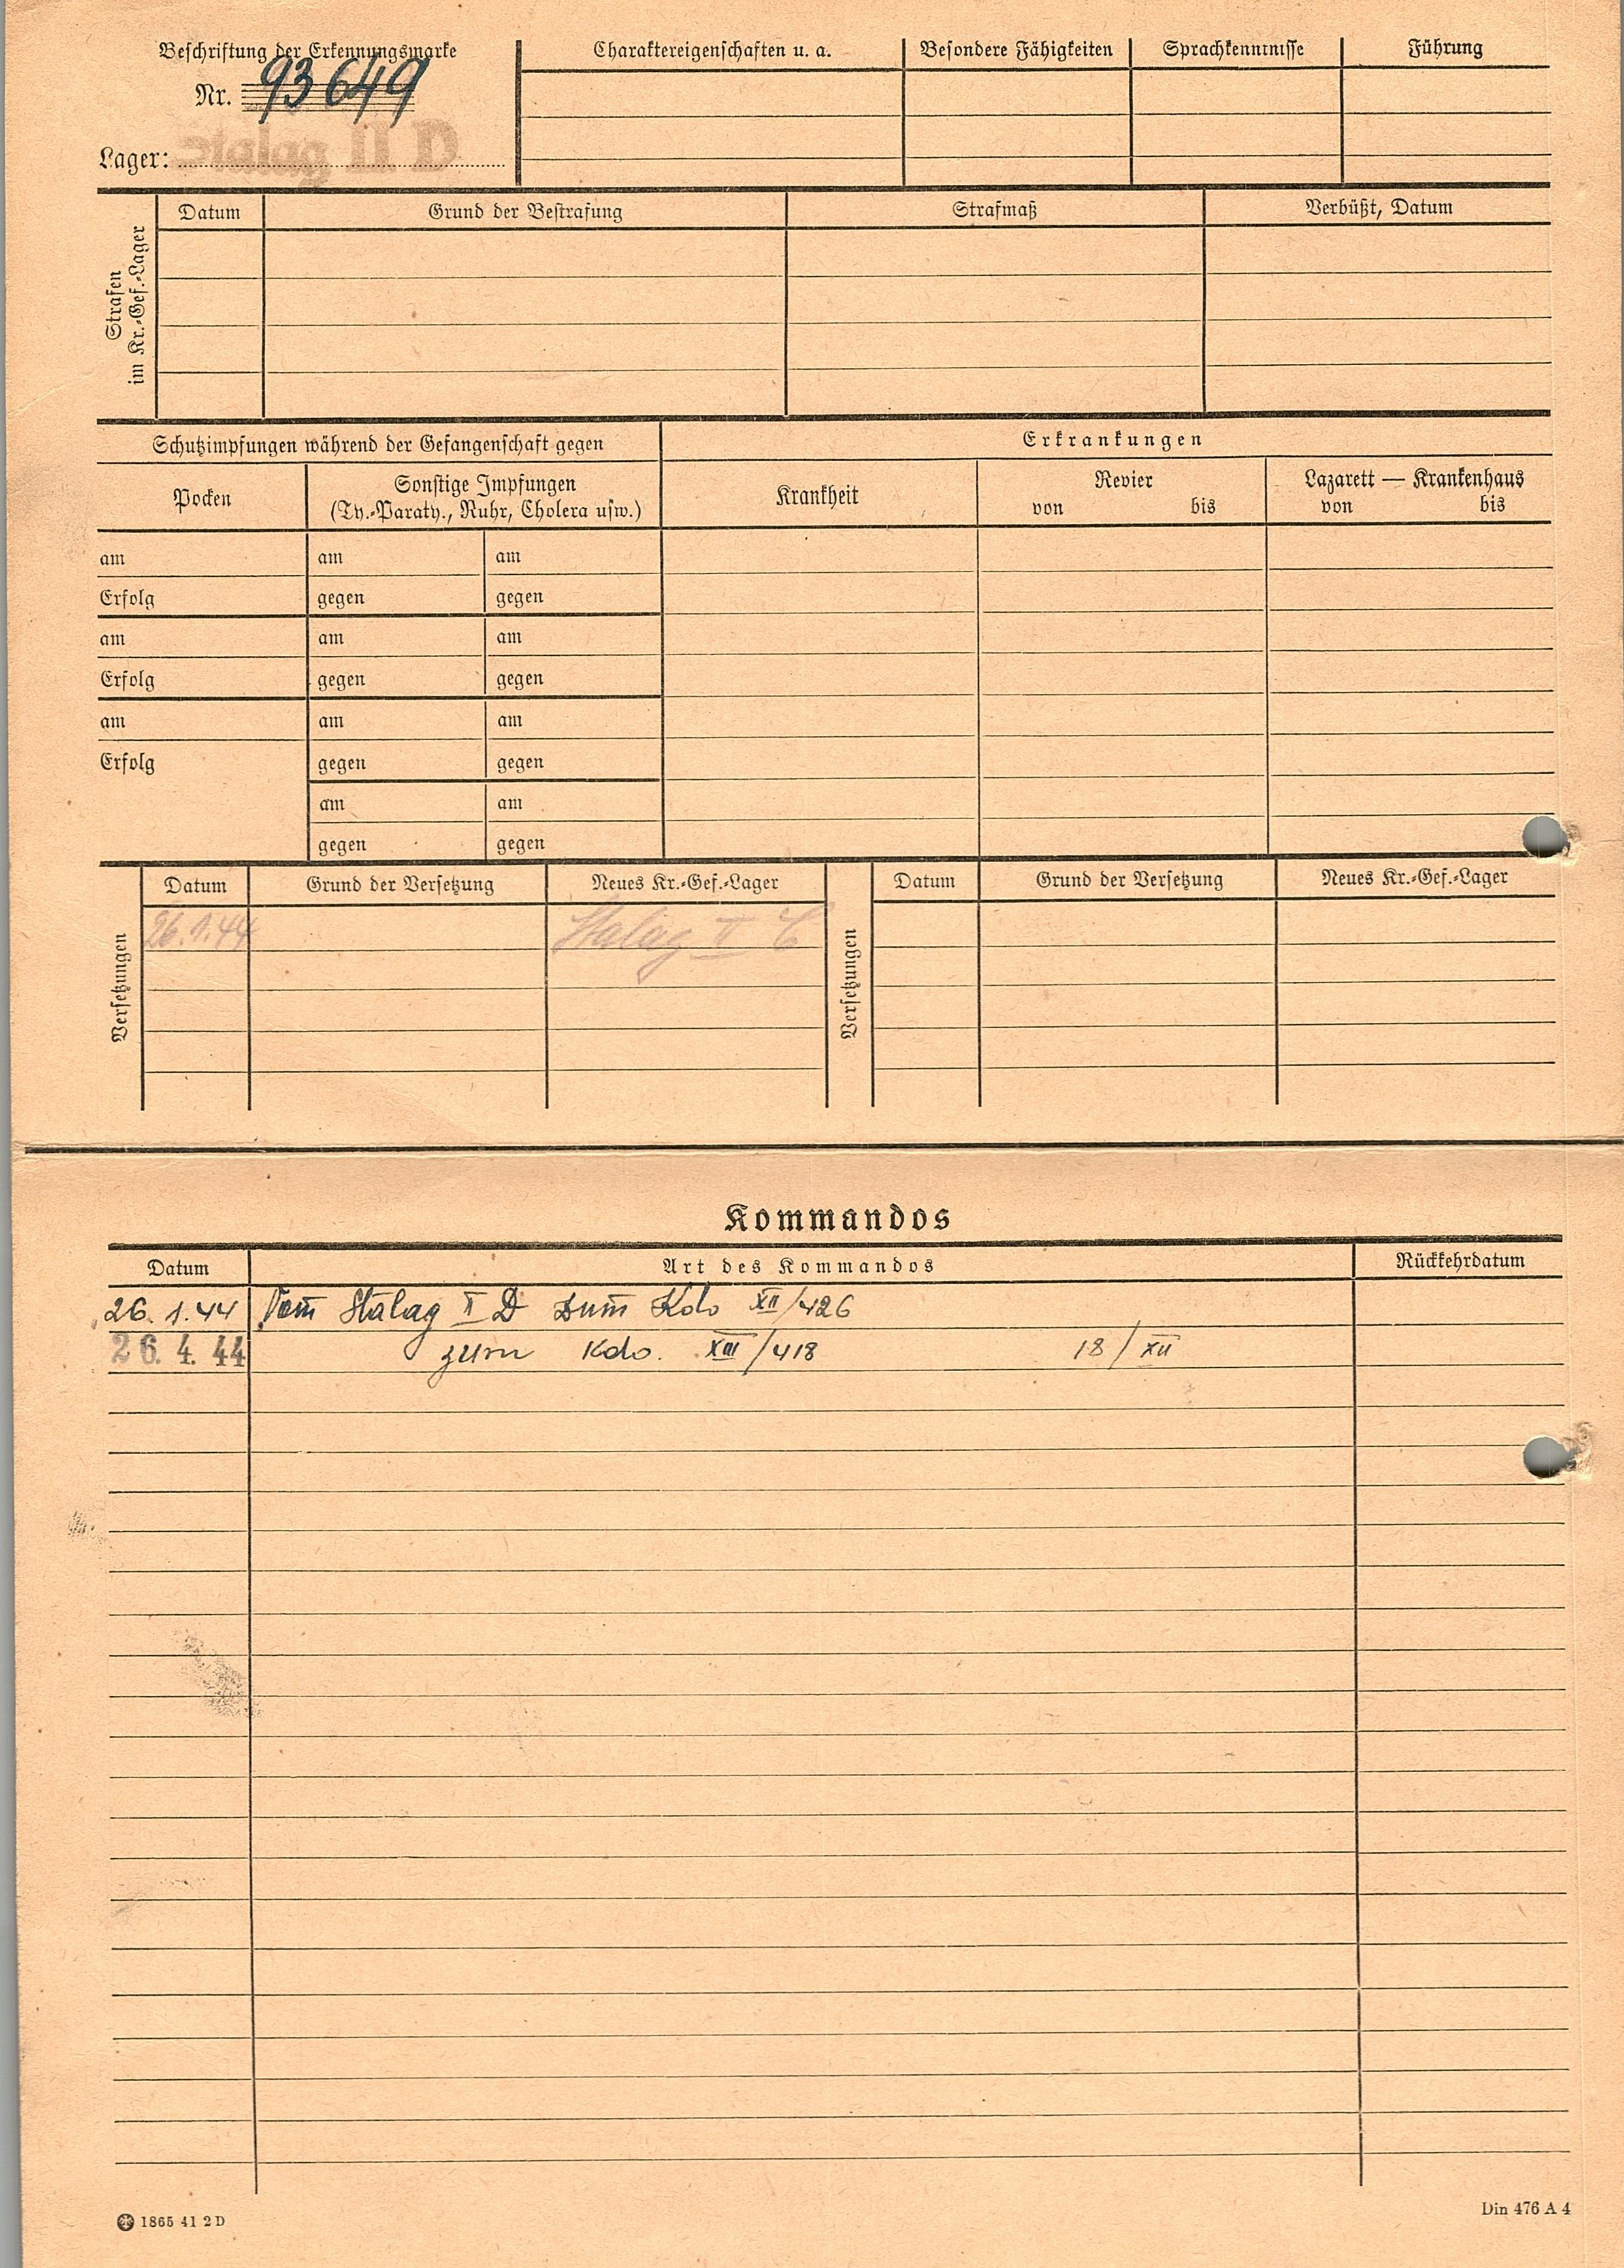 Beschriftung der Erkennungsmarke
Nr. 93649
Lager:
Charaktereigenschaften u. a.
Besondere Fähigkeiten
Sprachkenntnisse
Führung
Strafen
im Kr.-Gef.-Lager
Datum
Grund der Bestrafung
Strafmaß
Verbüßt, Datum
Schutzimpfungen während der Gefangenschaft gegen
Erkrankungen
Pocken
Sonstige Impfungen
(Ty.-Paraty., Ruhr, Cholera usw.)
Krankheit
Revier
von bis
Lazarett — Krankenhaus
von bis
am am am
Erfolg gegen gegen
am am am
Erfolg gegen gegen
am am am
Erfolg gegen gegen
am am
gegen gegen
Versetzungen
Datum Grund der Versetzung Neues Kr.-Gef.-Lager
26.1.44 Stalag II C
Versetzungen
Datum Grund der Versetzung Neues Kr.-Gef.-Lager
Kommandos
Datum Art des Kommandos Rückkehrdatum
26.1.44 Vom Stalag II D zum Kdo XII/426
26.4.44 zum Kdo. XIII/418 18/XII
1865 41 2 D
Din 476 A 4